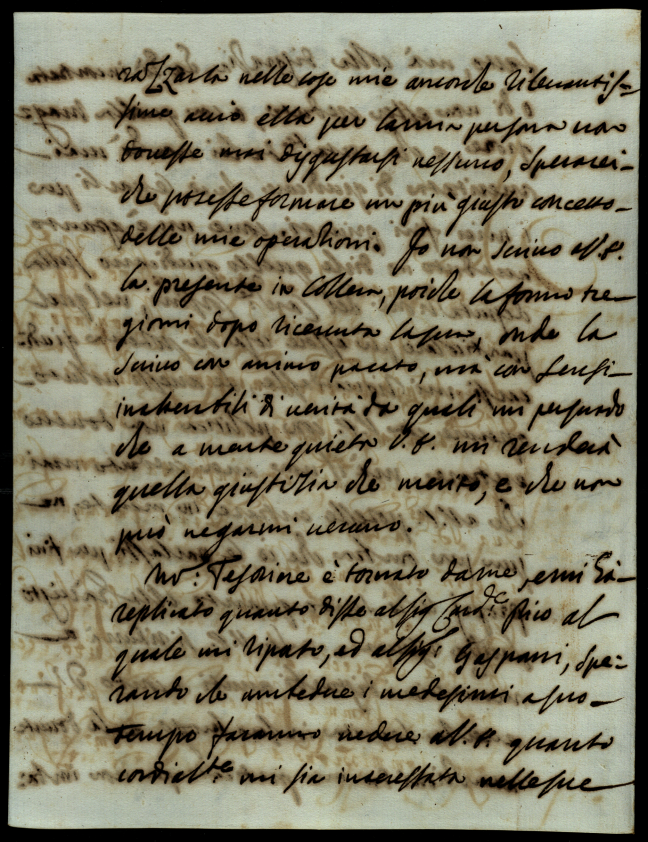 razzarla nelle cose mie ancorche rileuantis-
sime acciò ella per la mia persona non
douesse mai disgustarsi nessuno, sperarei-
che potesse formare un più giusto concetto-
delle mie operationi. Io non scriuo a V.S.
la presente in collera, poiche la formo tre-
giorni dopo riceuuta la sua, onde la
scriuo con animo pacato, mà con sensi-
inalterabili di uerità da quali mi persuado
che a mente quieta V.S. mi renderà
quella giustitia che merito, e che non
può negarmi ueruno.
Mr: Tesoriere è tornato da me, e mi hà-
replicato quanto disse al sig Card.le Pico al
quale mi riporto, ed al sig: Gasparri, spe-
rando che ambedue i medesimi a suo-
tempo faranno uedere a V.S. quanto
cordialte. mi sia interessata nelle sue